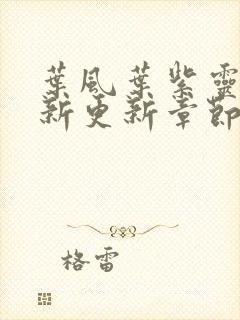 葉風葉紫靈
新更新章節
格雷